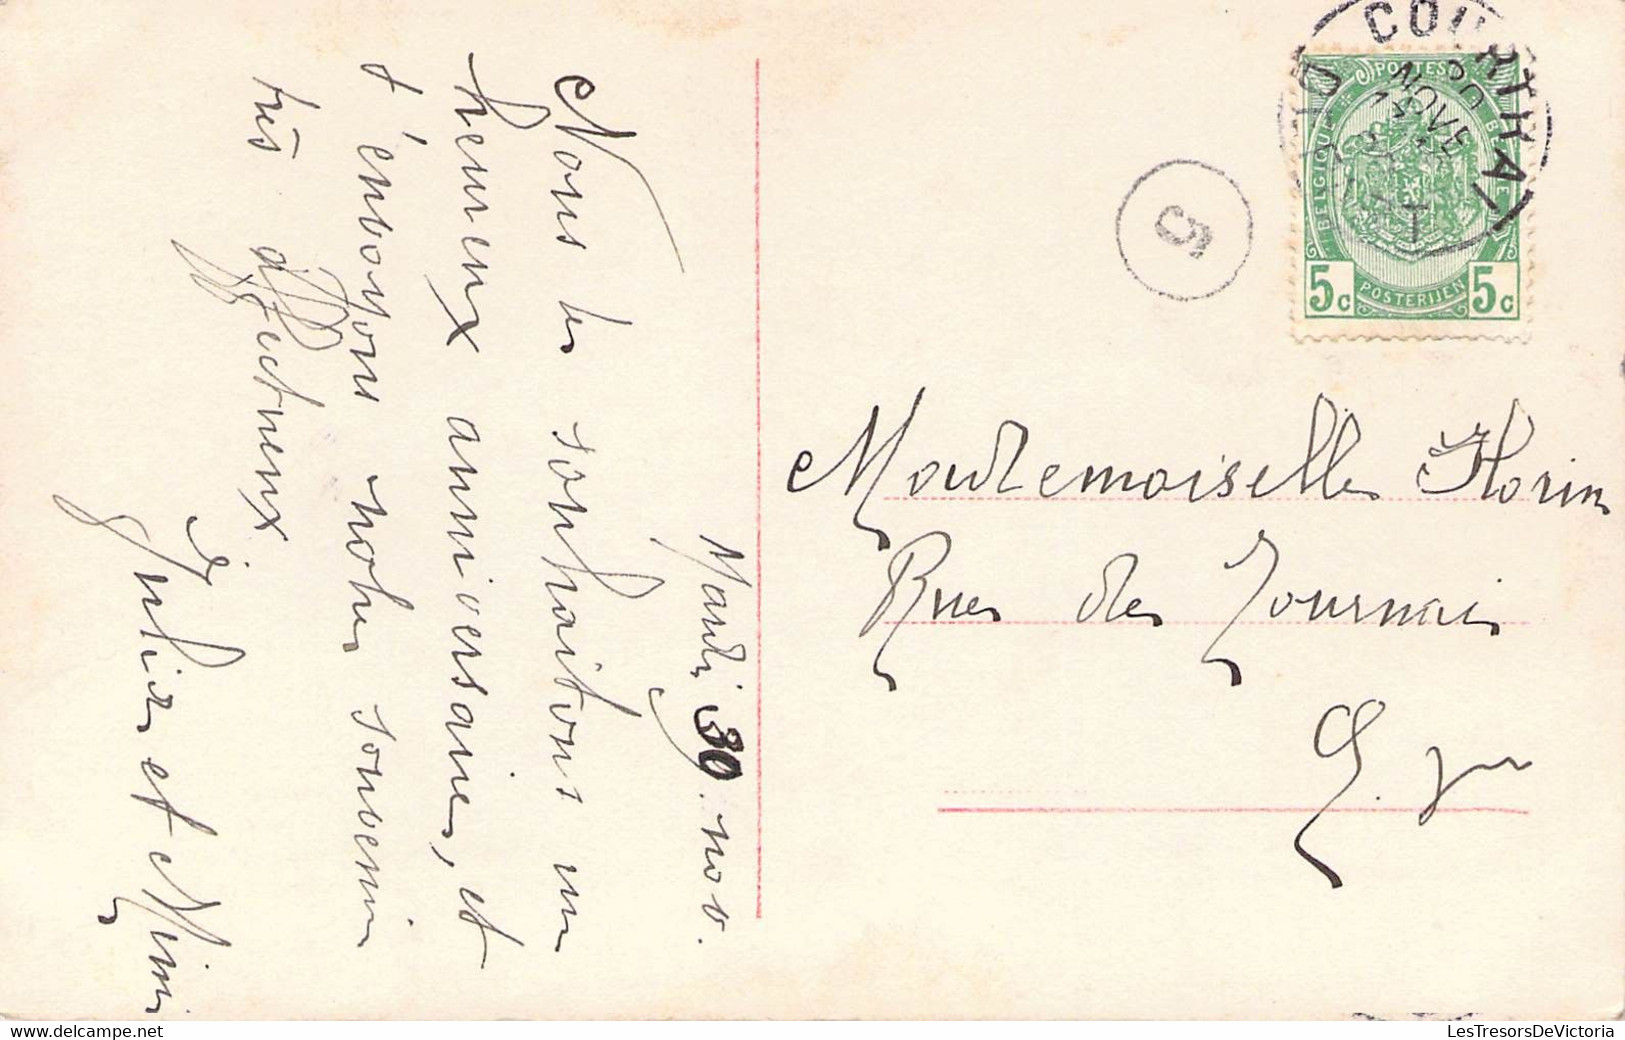 Mardi 30. nov.
Nous te souhaitons un
heureux anniversaire, et
t'envoyons notre souvenir
très affectueux
Julia et Mimi
COURTRAI
30
NOVE
POSTES
BELGIQUE
BELGIE
5c
POSTERIJEN
5c
5
Mademoiselle Florin
Rue de Tournai
LesTresorsDeVictoria